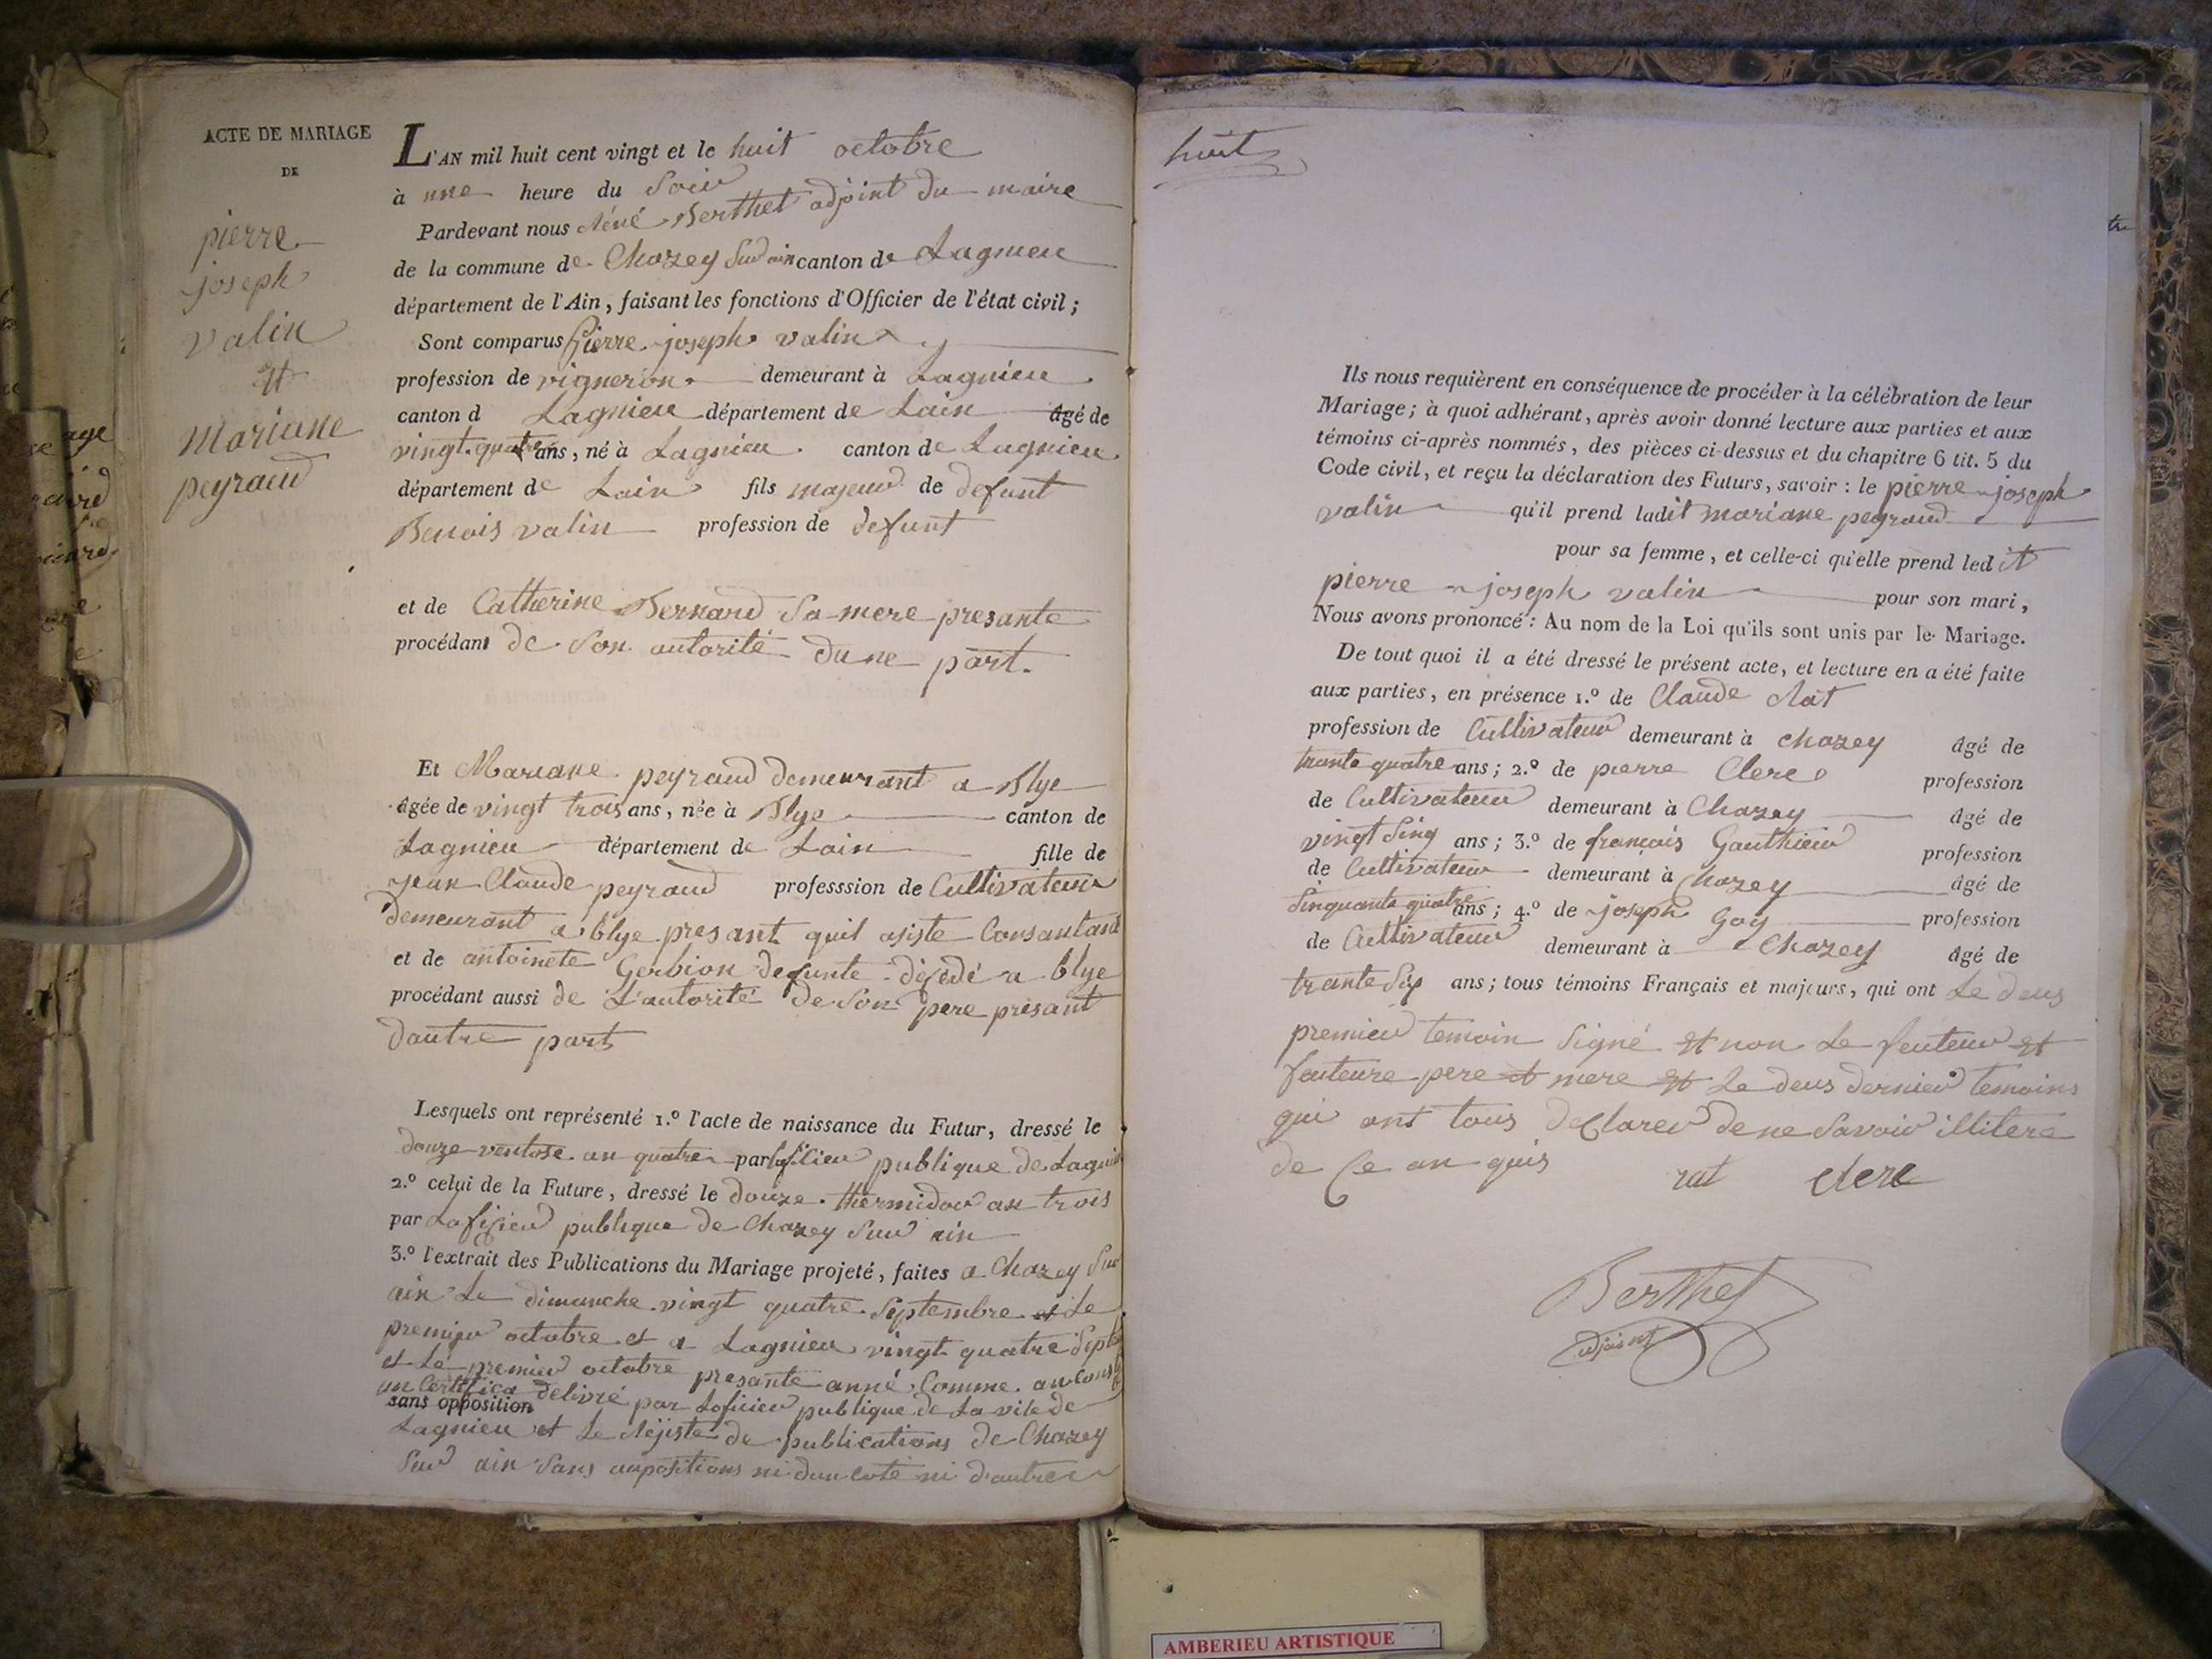 ACTE DE MARIAGE
DE
pierre
joseph
valin
et
Mariane
peyraud
L'AN mil huit cent vingt et le huit octobre
à une heure du Soir
Pardevant nous Réné Berthet adjoint du maire
de la commune de Chazey Sur ain canton de Lagnieu
département de l'Ain, faisant les fonctions d'Officier de l'état civil;
Sont comparus Pierre joseph valin
profession de vigneron demeurant à Lagnieu
canton d Lagnieu département de Lain âgé de
vingt quatre ans, né à Lagnieu canton de Lagnieu
département de Lain fils majeur de defunt
Benois valin profession de defunt
et de Catherine Bernard Sa mere presante
procédant de Son autorité dune part.
Et Mariane peyraud demeurant a Blye
âgée de vingt trois ans, née à Blye canton de
Lagnieu département de Lain fille de
jean Claude peyraud professsion de Cultivateur
demeurant a blye presant quil asiste Consantant
et de antoinete Gerbion defunte désedé a blye
procédant aussi de L'autorité de Son pere presant
dautre part
Lesquels ont représenté 1.º l'acte de naissance du Futur, dressé le
douze ventose an quatre par publique de Lagnieu
2.º celui de la Future, dressé le douze thermidor an trois
par Lofisier publique de Chazey Sur ain
3.º l'extrait des Publications du Mariage projeté, faites a Chazey Sur
ain Le dimanche vingt quatre Septembre et Le
premier octobre et a Lagnieu vingt quatre Sept
et Le premier octobre presante anné Comme
un Certifica délivré par Loficier publique de La vile de
sans opposition
Lagnieu et Le Réjiste de publications de Chazey
Sur ain Sans oupositions ni dun coté ni d'autre
huit
Ils nous requièrent en conséquence de procéder à la célébration de leur
Mariage; à quoi adhérant, après avoir donné lecture aux parties et aux
témoins ci-après nommés, des pièces ci-dessus et du chapitre 6 tit. 5 du
Code civil, et reçu la déclaration des Futurs, savoir: le pierre joseph
valin qu'il prend ladit mariane peyraud
pour sa femme, et celle-ci qu'elle prend led it
pierre joseph valin pour son mari,
Nous avons prononcé: Au nom de la Loi qu'ils sont unis par le Mariage.
De tout quoi il a été dressé le présent acte, et lecture en a été faite
aux parties, en présence 1.º de Claude Rat
profession de Cultivateur demeurant à chazey âgé de
trante quatre ans; 2.º de pierre Clerc profession
de Cultivateur demeurant à Chazey âgé de
vingt Sinq ans; 3.º de français Gauthier profession
de Cultivateur demeurant à Chazey âgé de
Sinquante quatre ans; 4.º de joseph Goy profession
de Cultivateur demeurant à Chazey âgé de
trante Six ans; tous témoins Français et majeurs, qui ont Le deus
premier temoin Signé et non Le feuteur et
feuteure pere et mere et Le deus dernier temoins
qui ont tous déclarer de ne Savoir illitere
de Ce an quis
rat clerc
Berthet
adjoint
AMBERIEU ARTISTIQUE